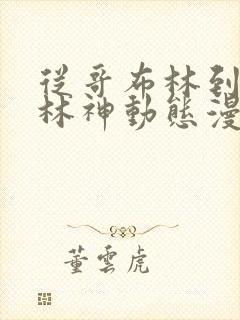 從哥布林到
林神動態漫
董雲虎